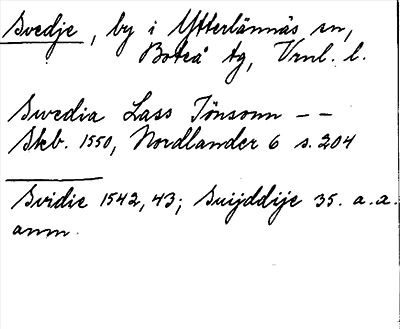 Svedje, by i Ytterlännäs sn,
Boteå tg, Vrnl. l.
Swedia Lass Jönsonn - -
Skb. 1550, Nordlander 6 s. 204
Svidie 1542, 43; Suijddije 35. a.a.
anm.